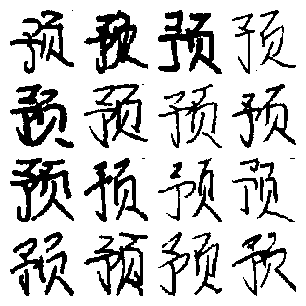 预预预预
预预预预
预预预预
预预预预